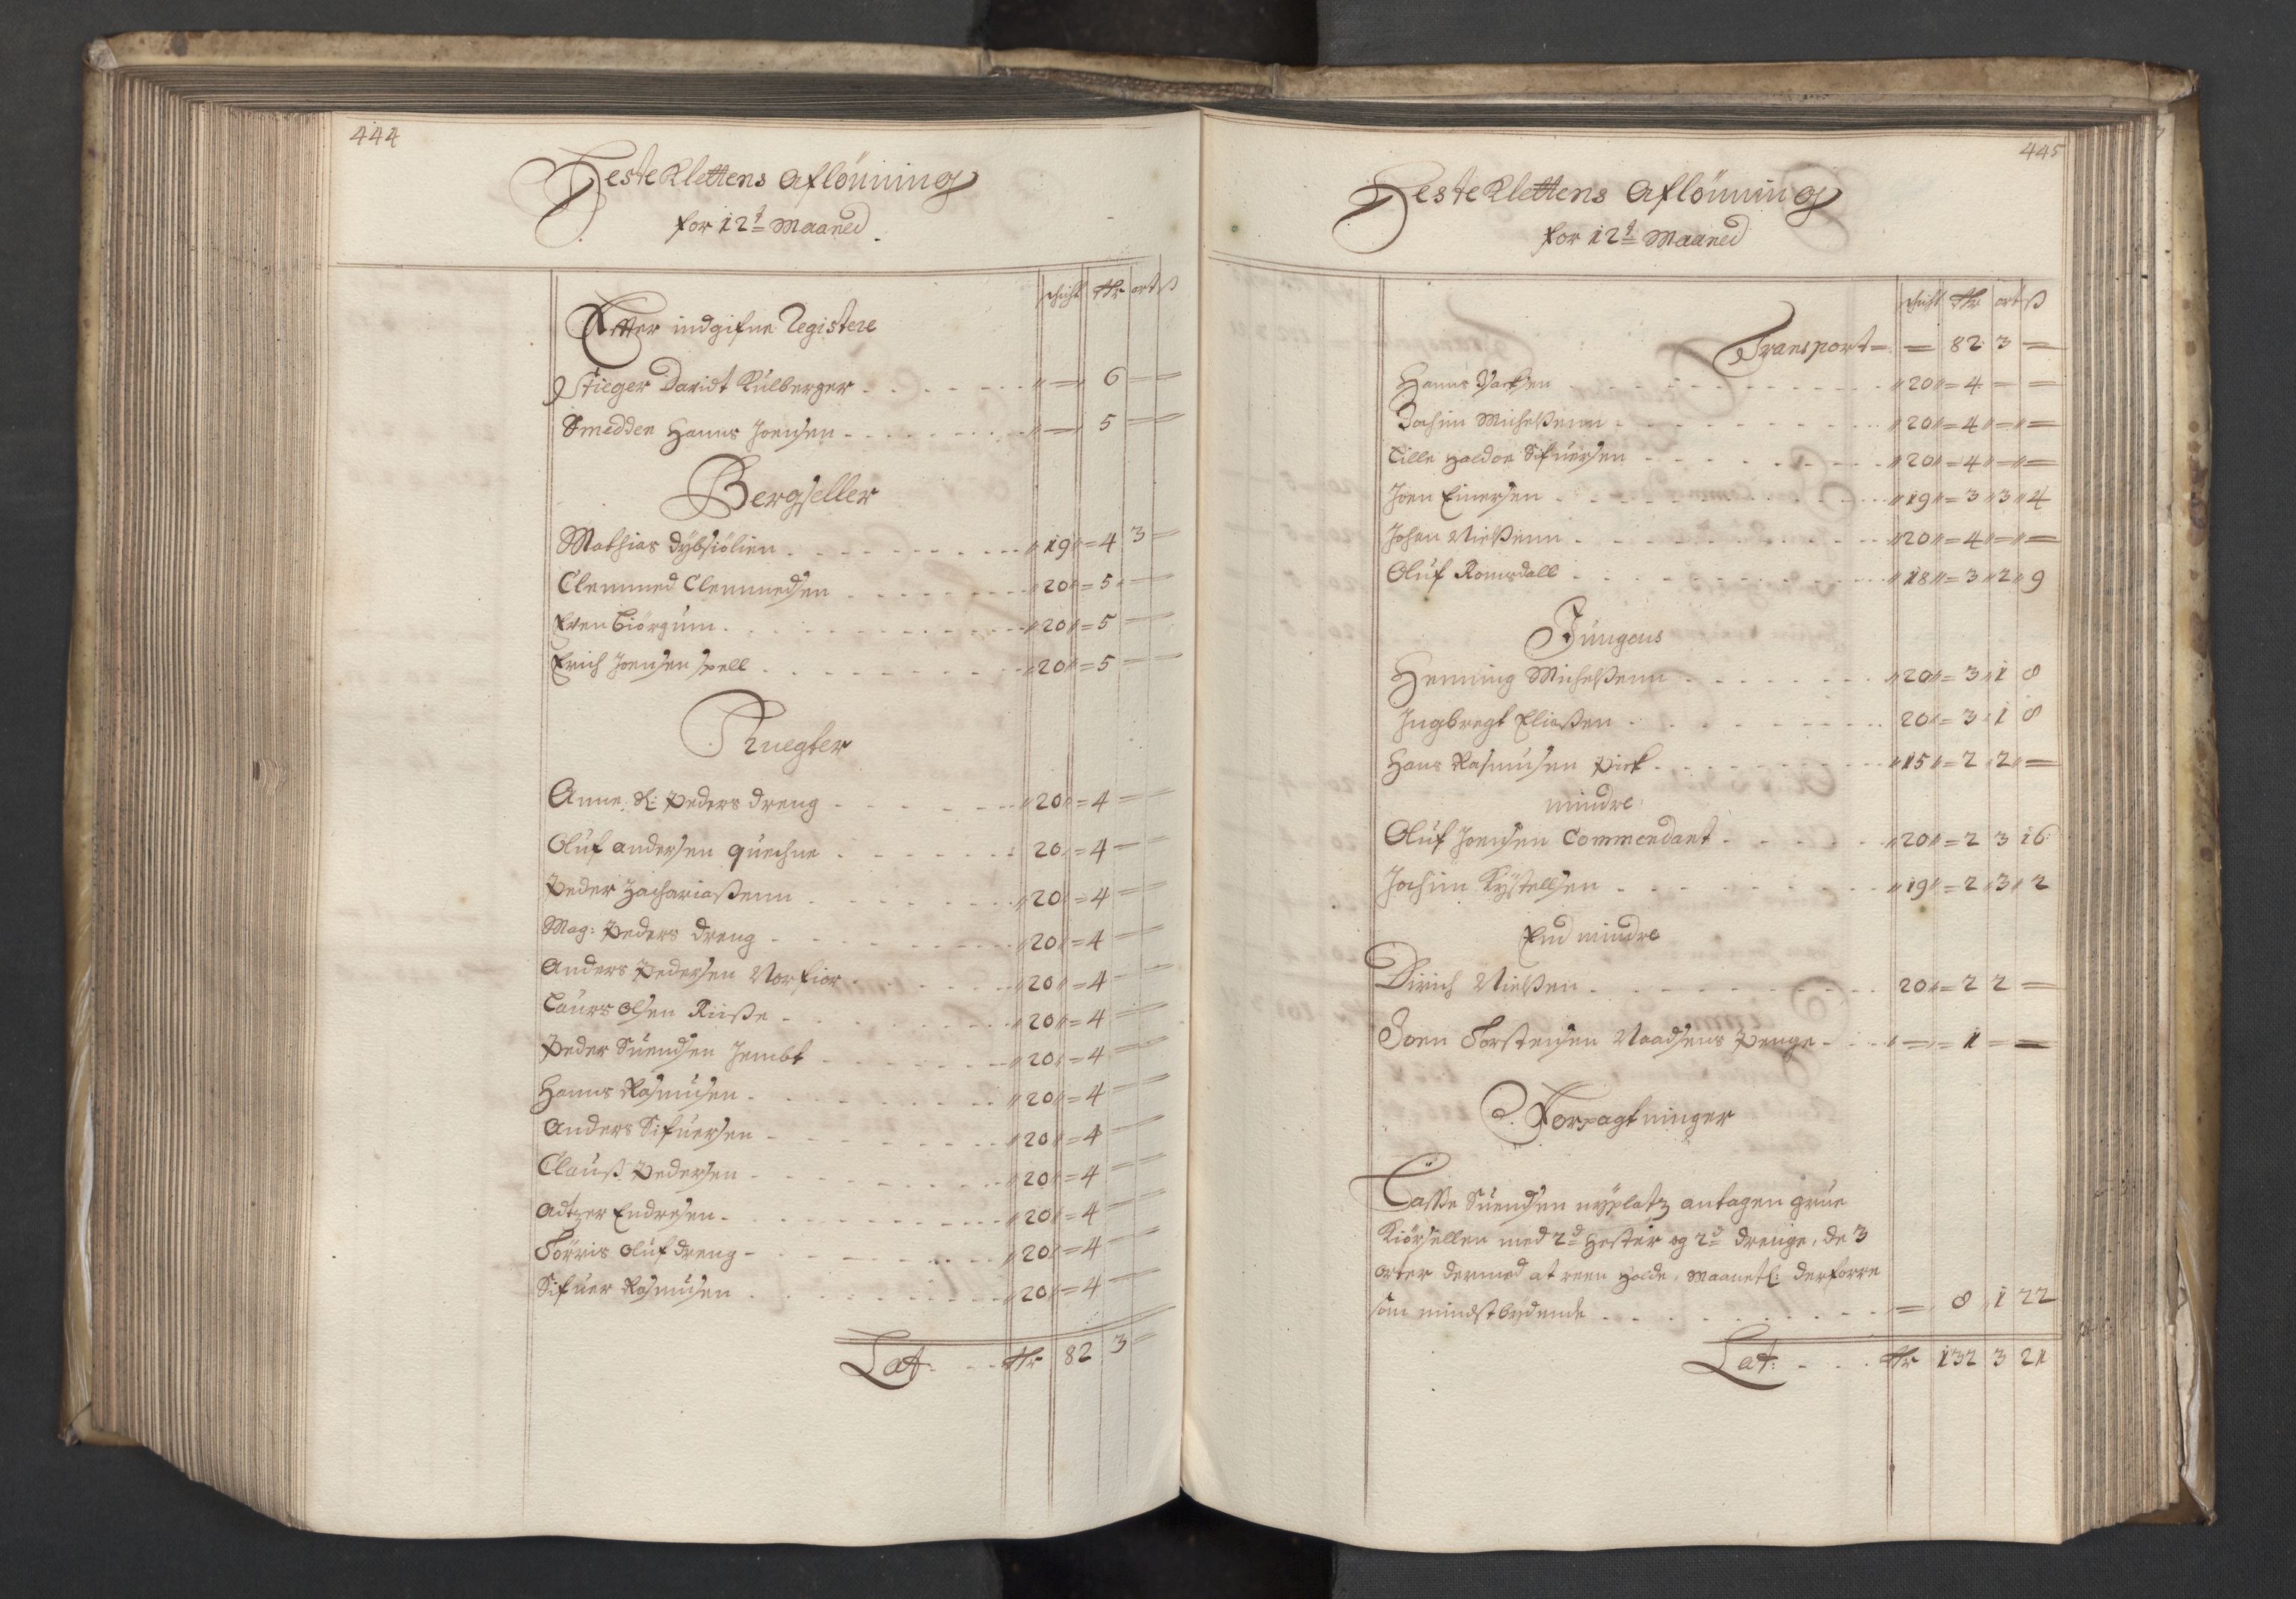 444
HesteKlettens Aflönning
for 12t Maaned
schicht Rdr ort ß
Effter indgifne Registere
Stieger Davidt Kulberger - - - " = 6 =
Smedden Hanns Joensen - - - " = 5 =
Bergseller
Mathias Dybsiölien - - - " 19 " = 4 3 =
Clemmed Clemmedsen - - - " 20 " = 5 =
Even Biörgum - - - " 20 " = 5 =
Erich Joensen Spell - - - " 20 " = 5 =
Knegter
Anne: Sl: Peders dreng - - - " 20 " = 4 =
Oluf Andersen quechne - - - 20 = 4 =
Peder Zachariaßenn - - - " 20 = 4 =
Mag: Peders dreng - - - " 20 " = 4 =
Anders Pedersen Norfior - - - " 20 " = 4 =
Laurs Olsen Riiße - - - " 20 " = 4 =
Peder Suendsen Jembt - - - " 20 " = 4 =
Hanns Rasmusen - - - " 20 " = 4 =
Anders Sifuersen - - - " 20 " = 4 =
Clauß Pedersen - - - " 20 " = 4 =
Adtzer Endresen - - - " 20 " = 4 =
Törris Oluf dreng - - - " 20 " = 4 =
Sifuer Rasmusen - - - " 20 " = 4 =
Lat: - - Rdr 82 3 =
445
HesteKlettens Aflönning
for 12t Maaned
schicht Rdr ort ß
Transport = = 82 3 =
Hanns Isacksen - - - " 20 " = 4 = =
Jochim Michelßenn - - - " 20 " = 4 " = " =
Lille Haldor Sifuersen - - - " 20 " = 4 " = " =
Joen Einersen - - - " 19 " = 3 " 3 " 4
Johan Nielßenn - - - " 20 " = 4 " = " =
Oluf Romsdall - - - " 18 " = 3 " 2 " 9
Jungens
Henning Michelßenn - - - " 20 " = 3 " 1 8
Ingbregt Eliaßen - - - 20 " = 3 " 1 8
Hans Rasmusen Pirk - - - " 15 " = 2 " 2 " =
mindre
Oluf Joensen Commendant - - - " 20 " = 2 3 16
Jochim Kystellsen - - - " 19 " = 2 " 3 " 2
End mindre
Dirich Nielßen - - - 20 " = 2 2 =
Joen Torstensen Naadsens Penge - - - " = " = 1 = =
Forpagtninger
Laße Suendsen nyplatz antagen grue
Kiörsellen med 2d Hester og 2d drenge, de 3
orter dermed at reen holde, Maanetl: derforre
som mindstbydende - - - = 8 " 1 22
Lat: - - - Rdr 132 3 21